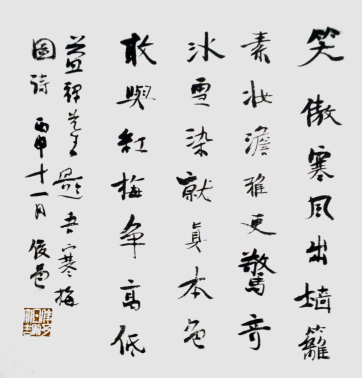 笑傲寒风出墙籬
素妝澹雅更驚奇
冰雪染就真本色
敢與紅梅争高低
先生題吾寒梅
圖詩 丙申十一月